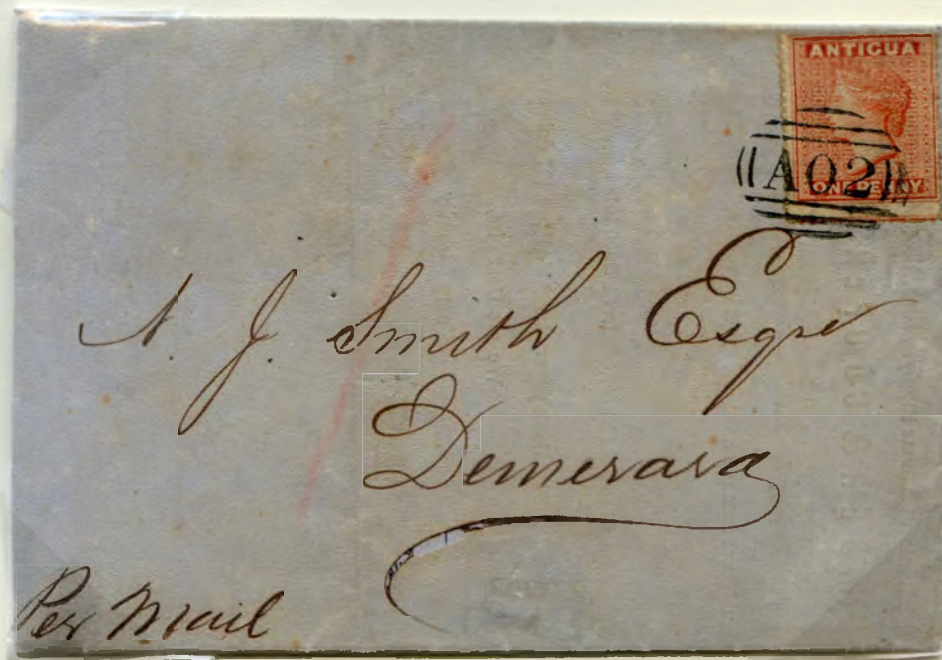 ANTIGUA
ONE PENNY
A02
N. J. Smith Esqre
Demerara
Per Mail